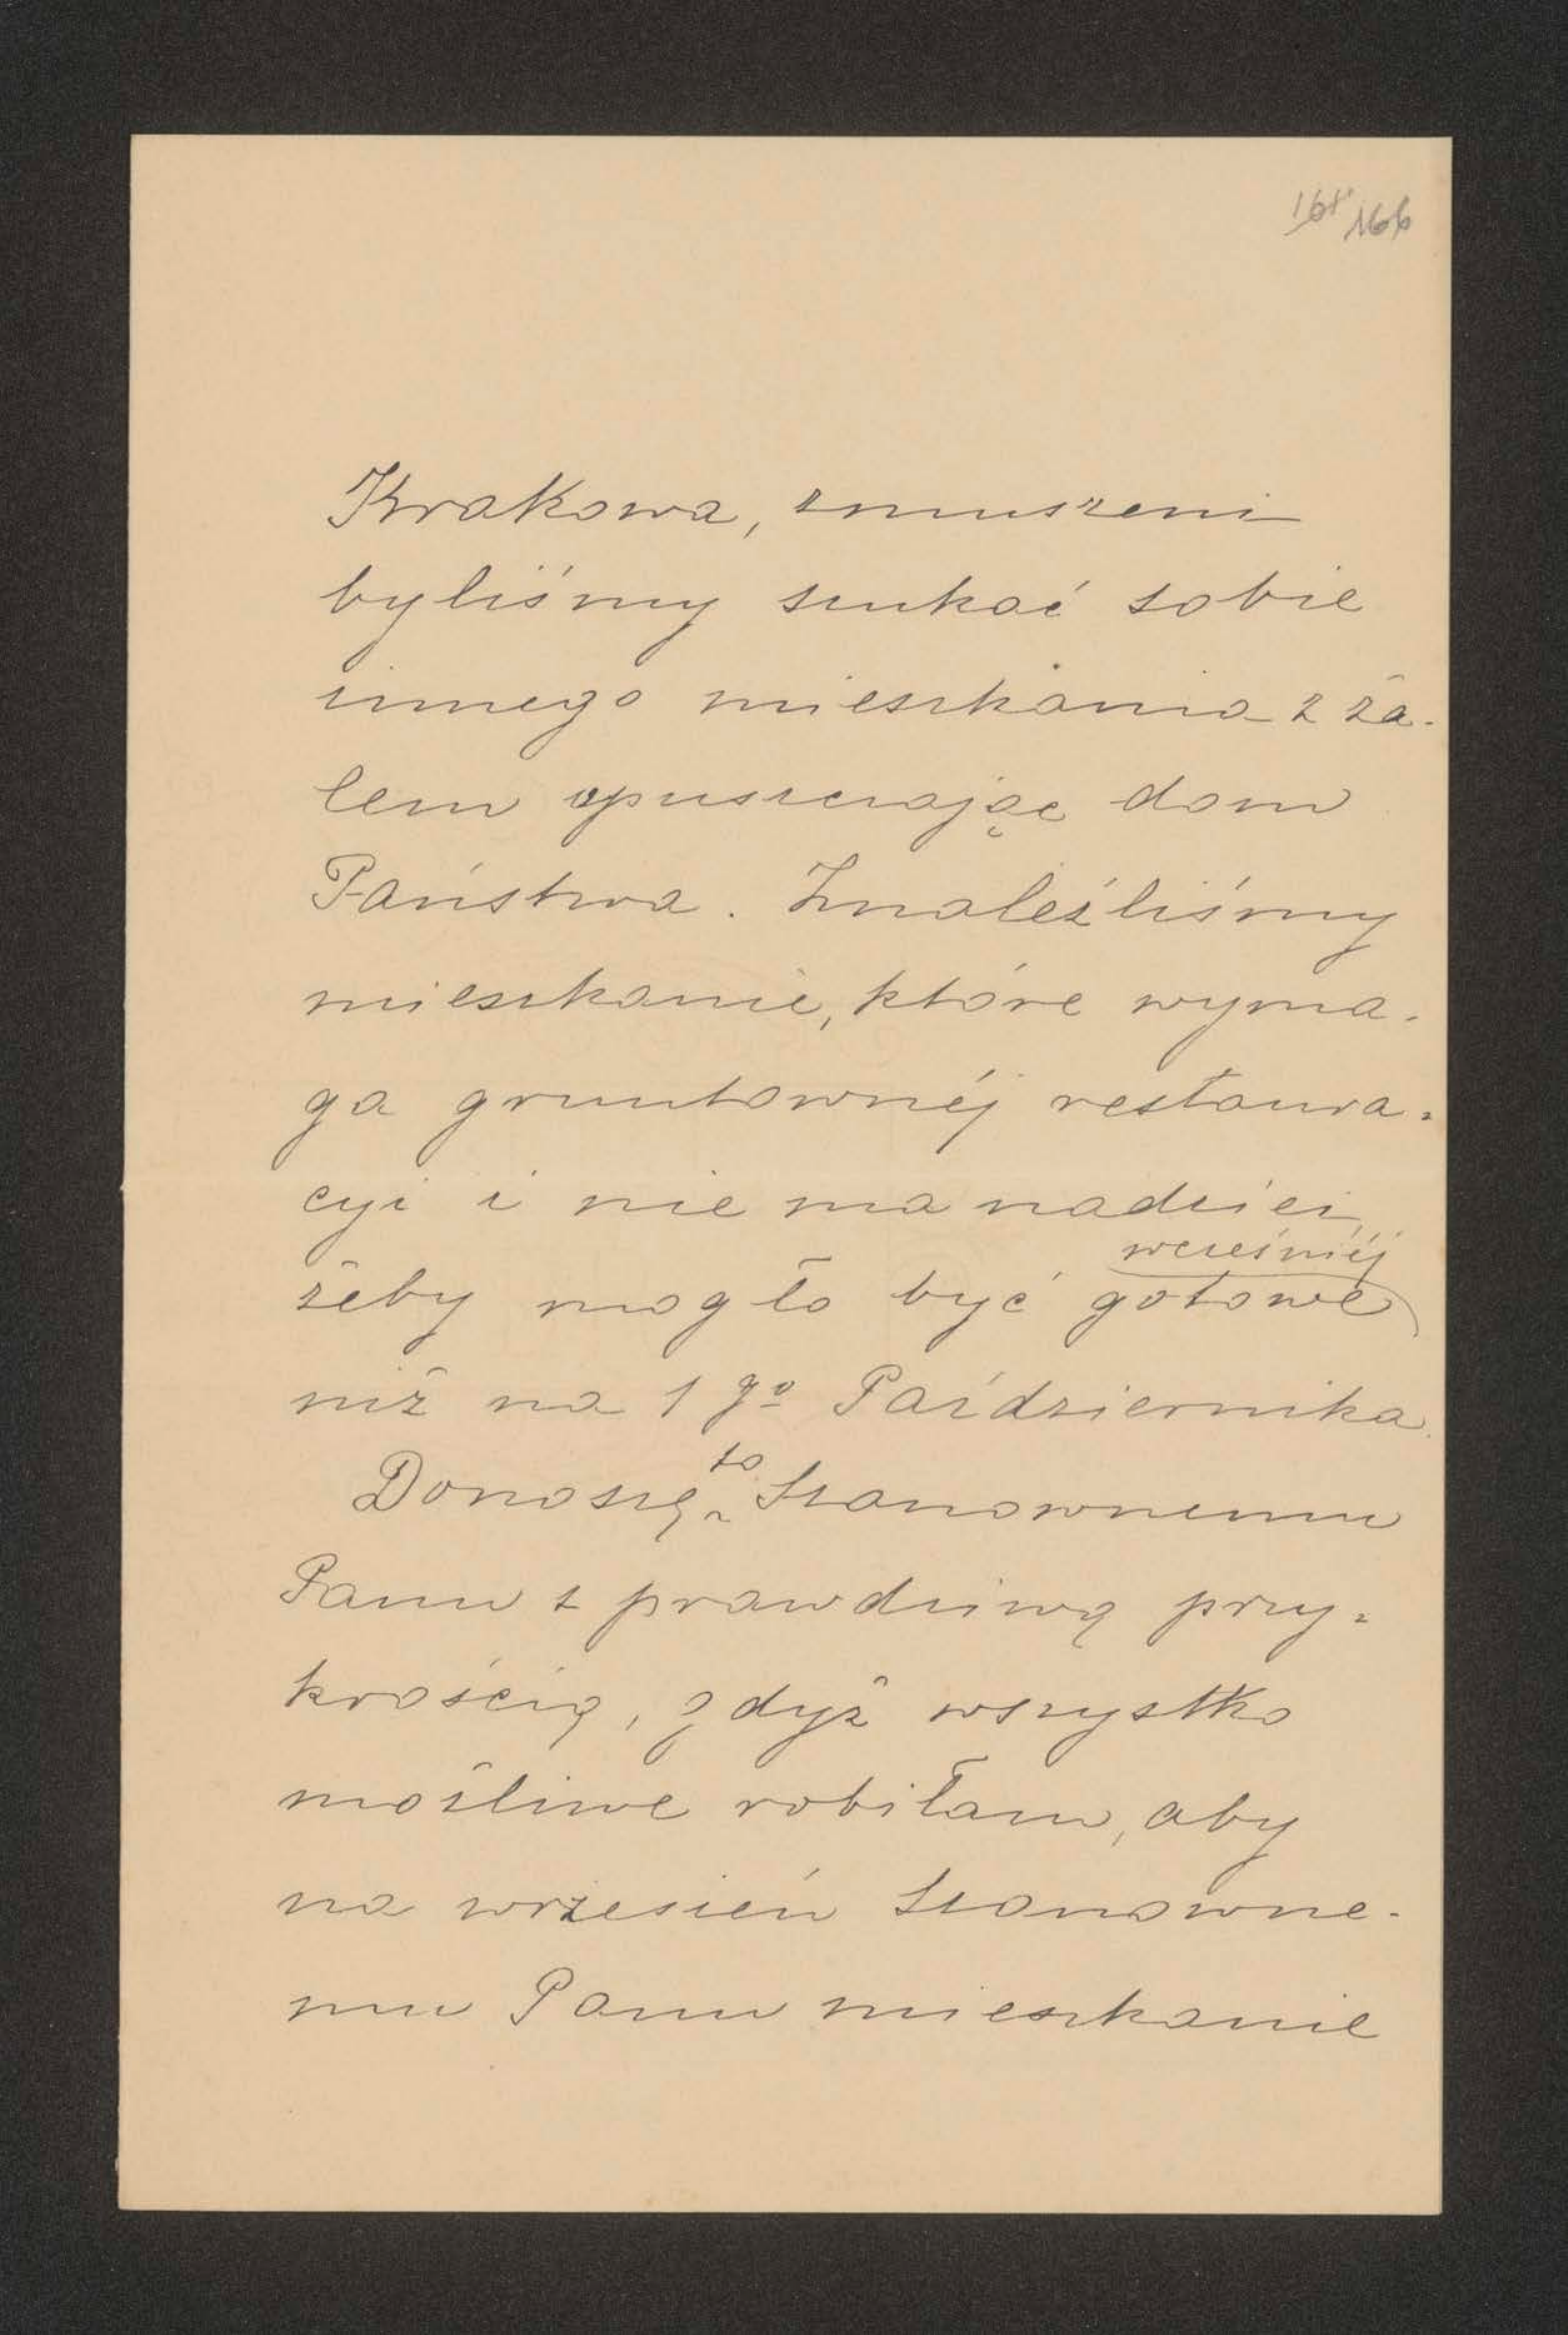 166
Krakowa, zmuszeni
byliśmy szukać sobie
innego mieszkania z ża-
lem opuszczając dom
Państwa. Znaleźliśmy
mieszkanie, które wyma-
ga gruntownéj restaura-
cyi i nie ma nadziei,
wcześniéj
żeby mogło być gotowe
niż na 1 go Października.
to
Donoszę Szanownemu
Panu z prawdziwą przy-
krością, gdyż wszystko
możliwe robiłam, aby
na wrzesień Szanowne-
mu Panu mieszkanie